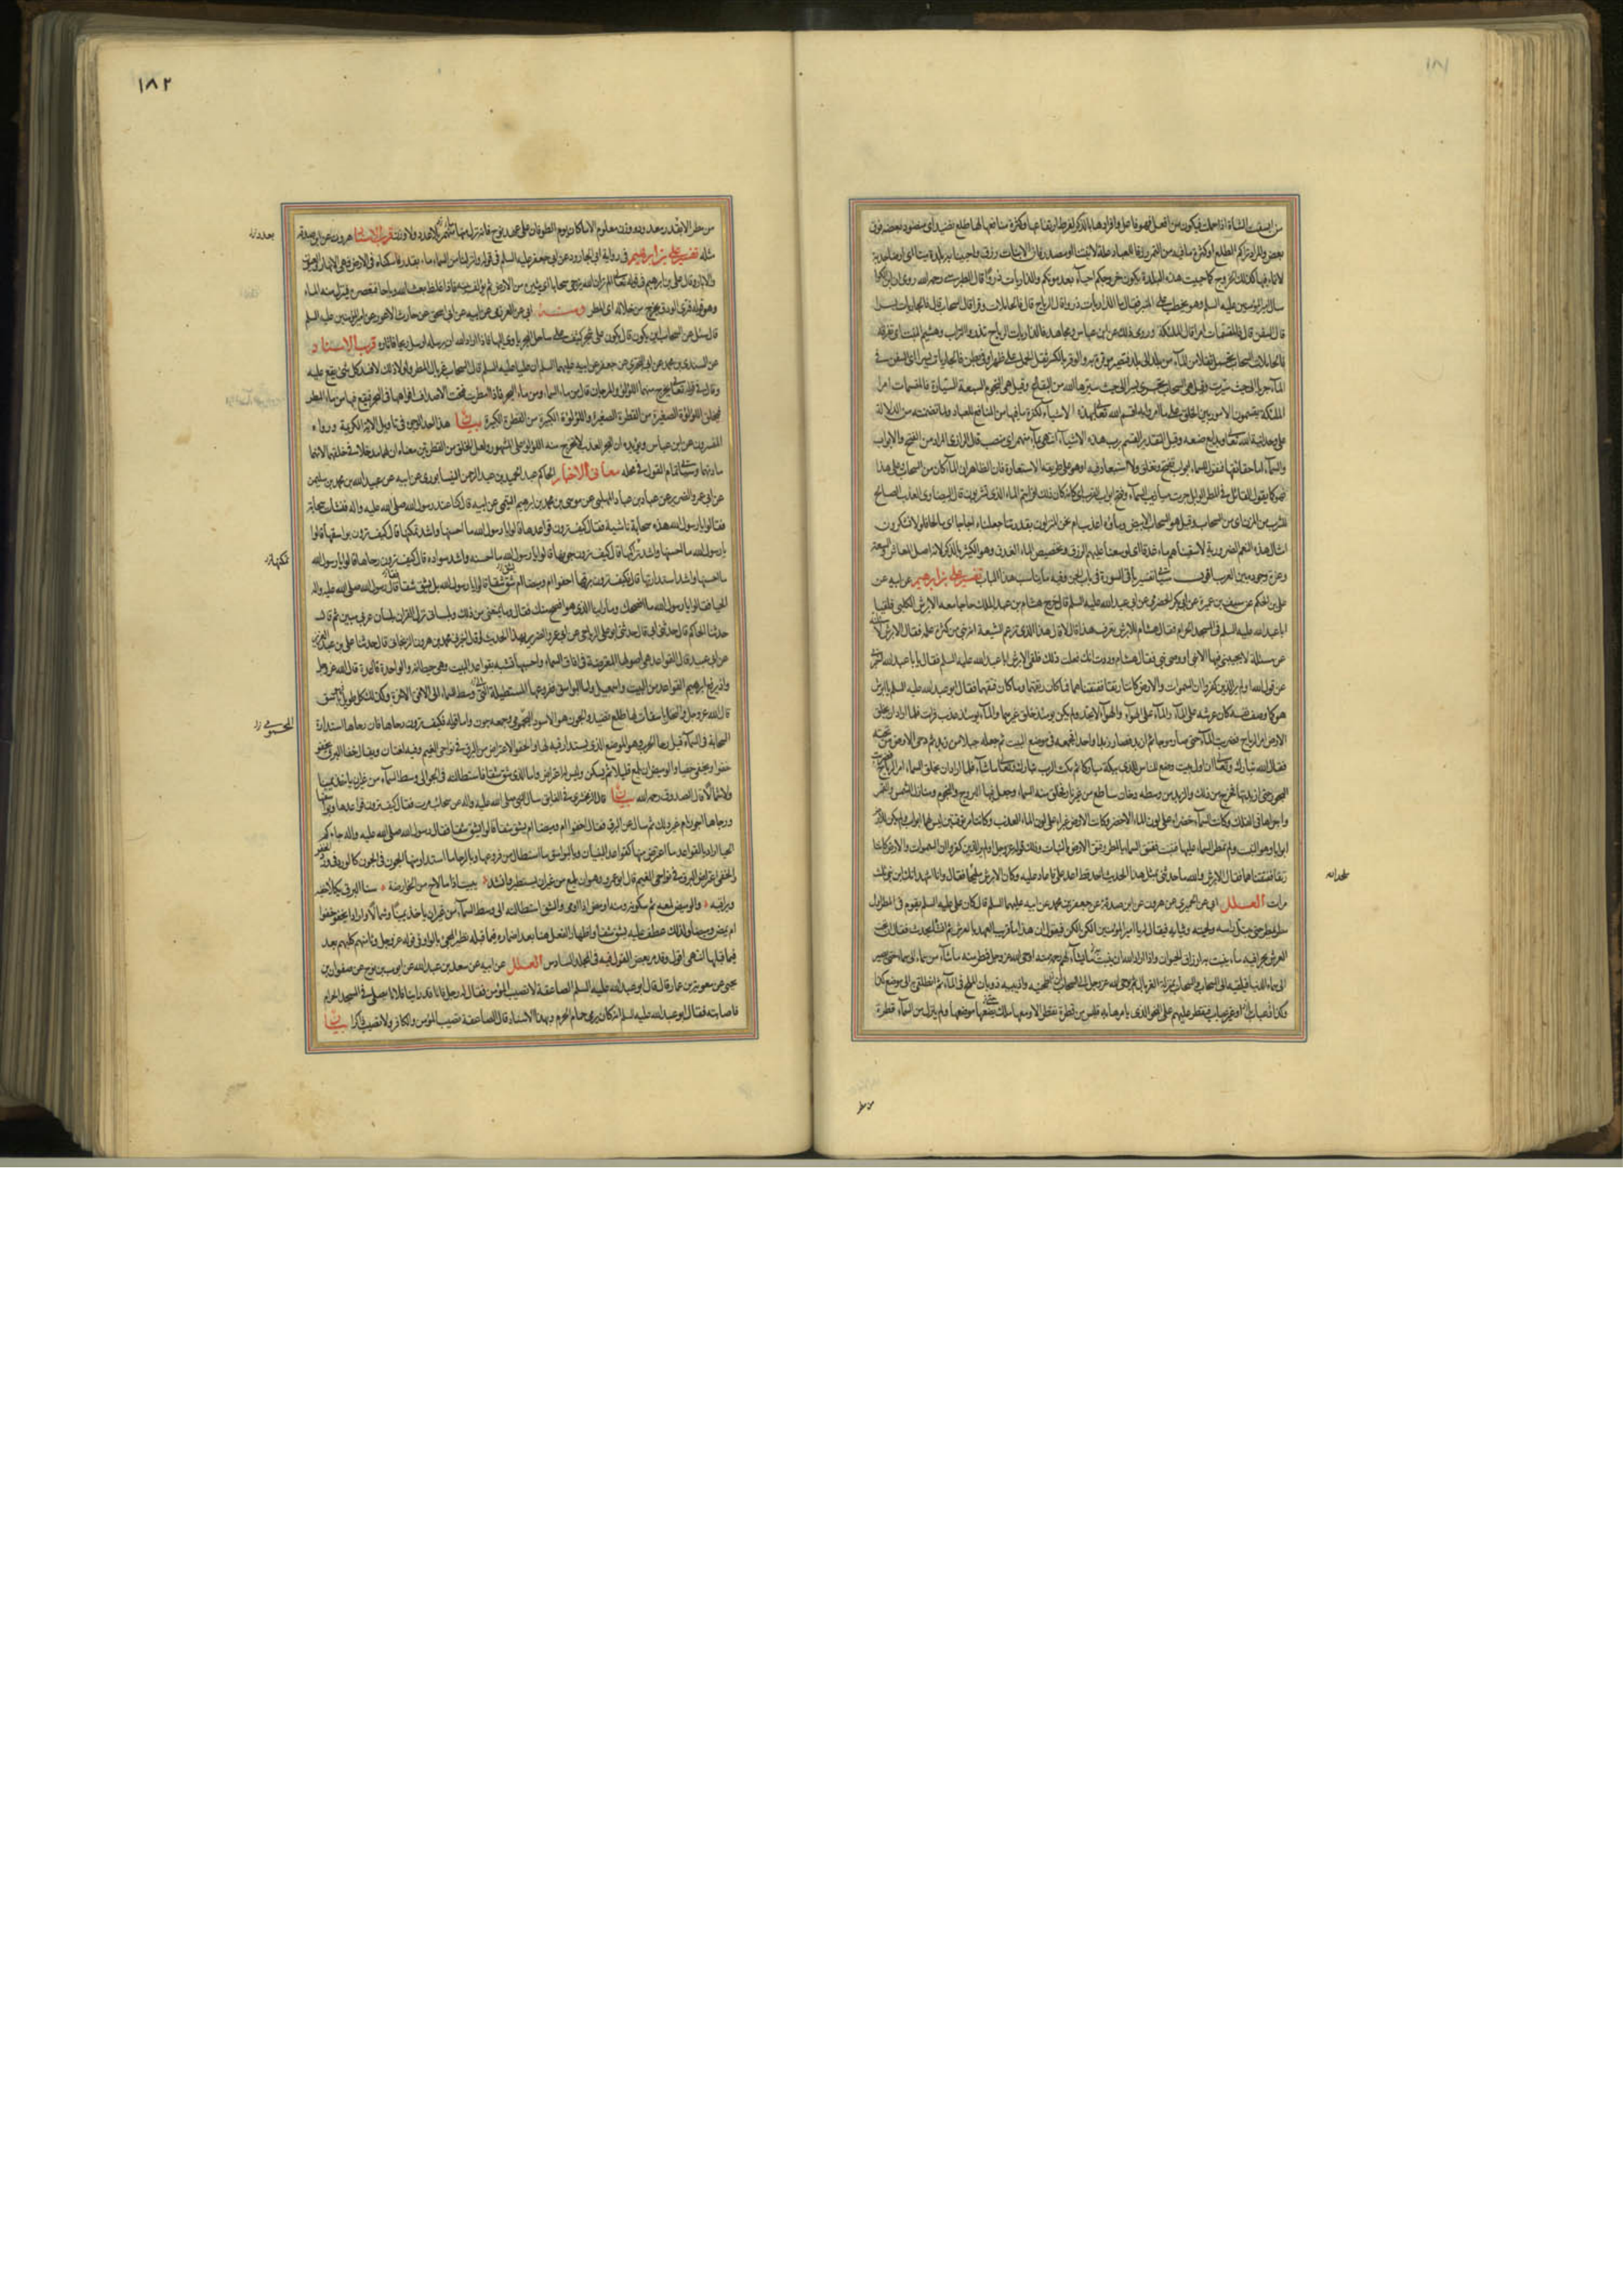 ١٨١
من ابسقت الشاة اذا حملت فيكون من افعل فهو فاعل وافرادها بالذكر لفرط ارتفاعها وكثرة منافعها لها طلع نضيد اى منضود بعضه فوق
بعض والمراد تراكم الطلع او كثرة ما فيه من الثمر رزقا للعباد علة لانبتنا او مصدر فان الانبات رزق واحيينا به بلدة ميتا اى ارضا جدبة
لا نماء فيها كذلك الخروج كما حييت هذه البلدة يكون خروجكم احياء بعد موتكم والذاريات ذروا قال الطبرسى رحمه الله روى ان ابن الكوا
سال امير المؤمنين عليه السلم وهو يخطب على المنبر فقال ما الذاريات ذروا قال الرياح قال فالحاملات وقرا قال السحاب قال فالجاريات يسرا
قال السفن قال فالمقسمات امرا قال الملئكة وروى ذلك عن ابن عباس ومجاهد فالذاريات الرياح تذرو التراب وهشيم النبت اى تفرقه
فالحاملات السحاب تحمل ثقلا من الماء من بلد الى بلد فتصير موقرة به والوقر بالكسر ثقل الحمل على ظهر او فى بطن فالجاريات يسرا اى السفن تجرى فى
الماء جريا الى حيث سيرت وقيل هى السحاب تجرى يسرا الى حيث سيرها الله من البقاع وقيل هى النجوم السبعة السيارة فالمقسمات امرا
الملئكة يقسمون الامور بين الخلق على ما امروا به اقسم الله تعالى بهذه الاشياء لكثرة ما فيها من المنافع للعباد ولما تضمنته من الدلالة
على وحدانية الله تعالى وبدايع صنعه وقيل التقدير القسم برب هذه الاشياء انتهى بماء منهمر اى منصب قال الرازى المراد من الفتح والابواب
والسماء اما حقائقها فنقول للسماء ابواب تفتح وتغلق ولا استبعاد فيه او هو على طريقة الاستعارة فان الظاهر ان الماء كان من السحاب وعلى هذا
فهو كما يقول القائل فى المطر الوابل جرت ميازيب السماء وفتح افواه القرب اى كانه كان ذلك افرايتم الماء الذى تشربون قال البيضاوى العذب الصالح
للشرب من المزن اى من السحاب وقيل هو السحاب الابيض وماؤه اعذب ام نحن المنزلون بقدرتنا جعلناه اجاجا اى مالحا فلولا تشكرون
امثال هذه النعم الضرورية لاسقيناهم ماء غدقا اى لوسعنا عليهم الرزق وتخصيص الماء الغدق وهو الكثير بالذكر لانه اصل المعاش والسعة
وعزة وجوده بين العرب اقول سياتى تفسير باقى السورة فى باب الجن وفيه ما يناسب هذا الباب تفسير على بن ابراهيم عن ابيه عن
على بن الحكم عن سيف بن عميرة عن ابى بكر الحضرمى عن ابى عبد الله عليه السلم قال خرج هشام بن عبد الملك حاجا معه الابرش الكلبى فلقيا
ابا عبد الله عليه السلم فى المسجد الحرام فقال هشام للابرش تعرف هذا قال لا قال هذا الذى تزعم الشيعة انه نبى من كثرة علمه فقال الابرش لاسئلنه
عن مسئلة لا يجيبنى فيها الا نبى او وصى نبى فقال هشام وددت انك فعلت ذلك فلقى الابرش ابا عبد الله عليه السلم فقال يا ابا عبد الله اخبرنى
عن قول الله اولم ير الذين كفروا ان السموات والارض كانتا رتقا ففتقناهما فما كان رتقهما وما كان فتقهما فقال ابو عبد الله عليه السلم يا ابرش
هو كما وصف نفسه كان عرشه على الماء والماء على الهواء والهواء لا يحد ولم يكن يومئذ خلق غيرهما والماء يومئذ عذب فرات فلما اراد ان يخلق
الارض امر الرياح فضربت الماء حتى صار موجا ثم ازبد فصار زبدا واحدا فجمعه فى موضع البيت ثم جعله جبلا من زبد ثم دحى الارض من تحته
فقال الله تبارك وتعالى ان اول بيت وضع للناس للذى ببكة مباركا ثم مكث الرب تبارك وتعالى ما شاء فلما اراد ان يخلق السماء امر الرياح فضربت
البحور حتى ازبدتها فخرج من ذلك والزبد من وسطه دخان ساطع من غير نار فخلق منه السماء وجعل فيها البروج والنجوم ومنازل الشمس والقمر
واجراها فى الفلك وكانت السماء خضراء على لون الماء الاخضر وكانت الارض غبراء على لون الماء العذب وكانتا مرتوقتين ليس لهما ابواب ولم يكن للارض
ابواب وهو النبت ولم تمطر السماء عليها فتنبت ففتق السماء بالمطر وفتق الارض بالنبات وذلك قوله عز وجل اولم ير الذين كفروا ان السموات والارض كانتا
رتقا ففتقناهما فقال الابرش والله ما حدثنى بمثل هذا الحديث احد قط اعد على فاعاد عليه وكان الابرش ملحدا فقال وانا اشهد انك ابن نبى ثلث
مرات العلل ابى عن الحميرى عن هرون عن ابن صدقة عن جعفر بن محمد عن ابيه عليهما السلم قال كان على عليه السلم يقوم فى المطر اول
مطر يمطر حتى يبتل راسه ولحيته وثيابه فيقال له يا امير المؤمنين الكن الكن فيقول ان هذا ماء قريب العهد بالعرش ثم انشا يحدث فقال ان تحت
العرش بحرا فيه ماء ينبت به ارزاق الحيوان واذا اراد الله ان ينبت ما يشاء لهم رحمة منه اوحى الله عز وجل فمطر منه ما شاء من سماء الى سماء حتى يصير
الى سماء الدنيا فيلقيه الى السحاب والسحاب بمنزلة الغربال ثم يوحى الله عز وجل الى السحاب اطحنيه واذيبيه ذوبان الملح فى الماء ثم انطلقى الى موضع كذا
وكذا فعباب او غير عباب فتقطر عليهم على النحو الذى يامرها به فليس من قطرة تقطر الا ومعها ملك يضعها موضعها ولم ينزل من السماء قطرة
ملحدا
١٨٢
من مطر الا بقدر معدود ووزن معلوم الا ما كان يوم الطوفان على عهد نوح فانه نزل منها ماء منهمر بلا عدد ولا وزن قرب الاسناد هرون عن ابن صدقة
مثله تفسير على بن ابراهيم فى رواية ابى الجارود عن ابى جعفر عليه السلم فى قوله وانزلنا من السماء ماء بقدر فاسكناه فى الارض فهى الانهار والعيون
والابار وقال على بن ابراهيم فى قوله تعالى الم تر ان الله يزجى سحابا اى يثيره من الارض ثم يؤلف بينه فاذا غلظ بعث الله رياحا فتعصره فينزل منه الماء
وهو قوله فترى الودق يخرج من خلاله اى المطر ومنه ابى عن العرزمى عن ابيه عن ابى اسحق عن حارث الاعور عن امير المؤمنين عليه السلم
قال سئل عن السحاب اين يكون قال يكون على شجر كثيف على ساحل البحر ياوى اليها فاذا اراد الله ان يرسله ارسل ريحا فاثاره قرب الاسناد
عن السندى بن محمد عن ابى البخترى عن جعفر عن ابيه عليهما السلم ان عليا عليه السلم قال السحاب غربال المطر ولولا ذلك لافسد كل شئ يقع عليه
وقال فى قوله تعالى يخرج منهما اللؤلؤ والمرجان قال من ماء السماء ومن ماء البحر فاذا امطرت فتحت الاصداف افواهها فى البحر فيقع فيها من ماء المطر
فتخلق اللؤلؤة الصغيرة من القطرة الصغيرة واللؤلؤة الكبيرة من القطرة الكبيرة بيان هذا احد الوجوه فى تاويل الاية الكريمة ورواه
المفسرون عن ابن عباس ويؤيده ان البحر العذب لا يخرج منه اللؤلؤ على المشهور ولعل الخلق من القطرتين معناه ان لهما مدخلا فى خلقهما لا انهما
مادتهما وسياتى تمام القول فى محله معانى الاخبار الحاكم عبد الحميد بن عبد الرحمن النيسابورى عن ابيه عن عبيد الله بن محمد بن سليمن
عن ابى عمرو الضرير عن عباد بن عباد المهلبى عن موسى بن محمد بن ابراهيم التيمى عن ابيه قال كنا عند رسول الله صلى الله عليه واله فنشات سحابة
فقالوا يا رسول الله هذه سحابة ناشية فقال كيف ترون قواعدها قالوا يا رسول الله ما احسنها واشد تمكنها قال كيف ترون بواسقها قالوا
يا رسول الله ما احسنها واشد تراكمها قال كيف ترون جونها قالوا يا رسول الله ما احسنه واشد سواده قال كيف ترون رحاها قالوا يا رسول الله
ما احسنها واشد استدارتها قال كيف ترون برقها اخفوا ام وميضا ام يشق شقا قالوا يا رسول الله بل يشق شقا فقال رسول الله صلى الله عليه واله
الحيا فقالوا يا رسول الله ما افصحك وما راينا الذى هو افصح منك فقال وما يمنعنى من ذلك وبلسانى نزل القران بلسان عربى مبين ثم قال
حدثنا الحاكم قال حدثنى ابى قال حدثنى ابو على الرياحى عن ابى عمرو الضرير بهذا الحديث اخبرنى محمد بن هرون الزنجانى قال حدثنا على بن عبد العزيز
عن ابى عبيد قال القواعد هى اصولها المعترضة فى افاق السماء واحسبها تشبه بقواعد البيت وهى حيطانه والواحدة قاعدة قال الله عز وجل
واذ يرفع ابراهيم القواعد من البيت واسمعيل واما البواسق ففروعها المستطيلة التى فى وسط السماء الى الافق الاخر وكذلك كل طويل باسق
قال الله عز وجل والنخل باسقات لها طلع نضيد والجون هو الاسود اليحمومى وجمعه جون واما قوله فكيف ترون رحاها فان رحاها استدارة
السحابة فى السماء ولهذا قيل رحا الحرب وهو الموضع الذى يستدار فيه لها والخفو الاعتراض من البرق فى نواحى الغيم وفيه لغتان ويقال خفا البرق يخفو
خفوا ويخفى خفيا والوميض ان يلمع قليلا ثم يسكن وليس له اعتراض واما الذى يشق شقا فاستطالته فى الجو الى وسط السماء من غير ان ياخذ يمينا
ولا شمالا قال الصدوق رحمه الله بيان قال الزمخشرى فى الفايق سال النبى صلى الله عليه واله عن سحائب مرت فقال كيف ترون قواعدها وبواسقها
ورحاها اجون ام غير ذلك ثم سال عن البرق فقال اخفوا ام وميضا ام يشق شقا قالوا يشق شقا فقال رسول الله صلى الله عليه واله جاءكم
الحيا اراد بالقواعد ما اعترض منها كقواعد البنيان وبالبواسق ما استطال من فروعها وبالرحا ما استدار منها الجون فى الجون كالورد فى ورد الخفو
والخفى اعتراض البرق فى نواحى الغيم قال ابو عمرو هو ان يلمع من غير ان يستطير وانشد يبيت اذا ما لاح من نحو ارضه سنا البرق يكلا خفيه
ويراقبه والوميض لمعه ثم سكونه ومنه اومض اذا اومى والشق استطالته الى وسط السماء من غير ان ياخذ يمينا وشمالا واراد ايخفو خفوا
ام يمض وميضا ولذلك عطف عليه يشق شقا واظهار الفعل هنا بعد اضماره فيما قبله نظير المجئ بالواو فى قوله عز وجل وثامنهم كلبهم بعد
فيما قبلها انتهى اقول وقد مر بعض القول فيه فى المجلد السادس العلل عن ابيه عن سعد بن عبد الله عن ايوب بن نوح عن صفوان بن
يحيى عن معوية بن عمار قال قال ابو عبد الله عليه السلم الصاعقة لا تصيب المؤمن فقال له رجل فانا قد راينا فلانا يصلى فى المسجد الحرام
فاصابته فقال ابو عبد الله عليه السلم انه كان يرمى حمام الحرم وبهذا الاسناد قال الصاعقة تصيب المؤمن والكافر ولا تصيب ذاكرا بيان